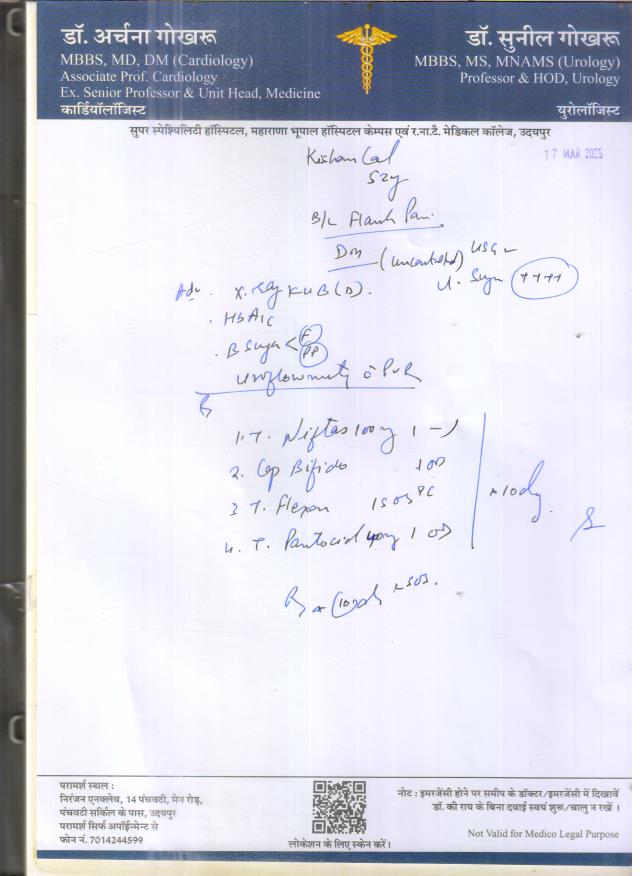 डॉ. अर्चना गोखरू
MBBS, MD, DM (Cardiology)
Associate Prof. Cardiology
Ex. Senior Professor & Unit Head, Medicine
कार्डियॉलॉजिस्ट
डॉ. सुनील गोखरू
MBBS, MS, MNAMS (Urology)
Professor & HOD, Urology
युरोलॉजिस्ट
सुपर स्पेश्यिलिटी हॉस्पिटल, महाराणा भूपाल हॉस्पिटल केम्पस एवं र.ना.टै. मेडिकल कॉलेज, उदयपुर
17 MAR 2025
Kishan Lal
52y
B/L Flank Pain
DM (uncontrolled) USG
U. Sugar ++++
Adv. X. Ray KUB (D).
. HbA1C
. B Sugar < F PP
Uroflowmetry c̄ PVR
1. T. Niftas 100mg 1 - 1
2. Cap Bifido 1 OD
3 T. Flexon 1 SOS PC
4. T. Pantocid 40mg 1 OD
x 10 day
x SOS.
परामर्श स्थल :
निरंजन एनक्लेव, 14 पंचवटी, मेन रोड़,
पंचवटी सर्किल के पास, उदयपुर
परामर्श सिर्फ अपॉईन्मेन्ट से
फोन नं. 7014244599
लोकेशन के लिए स्केन करें।
नोट : इमरजेंसी होने पर समीप के डॉक्टर/इमरजेंसी में दिखावें
डॉ. की राय के बिना दवाई स्वयं शुरू/चालु न रखें ।
Not Valid for Medico Legal Purpose